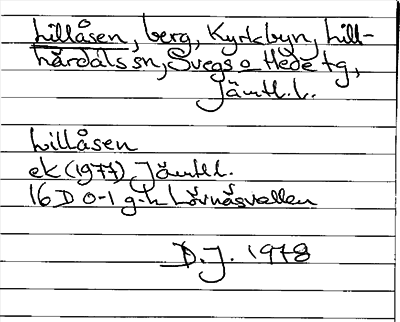 Lillåsen, berg, Kyrkbyn, Lill-
härdals sn, Svegs o Hede tg,
Jämtl.l.
Lillåsen
ek (1977) Jämtl l.
16 D 0-1 g-h Lövnäsvallen
D.J. 1978